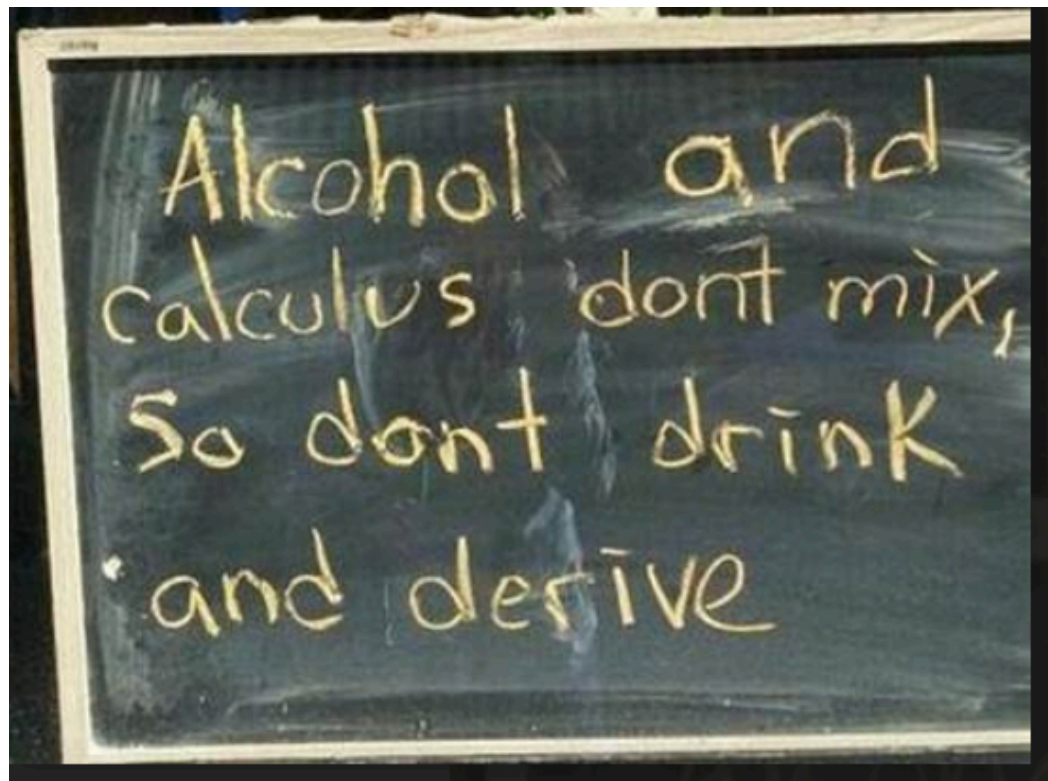 Alcohol and
calculus dont mix,
So dont drink
and derive